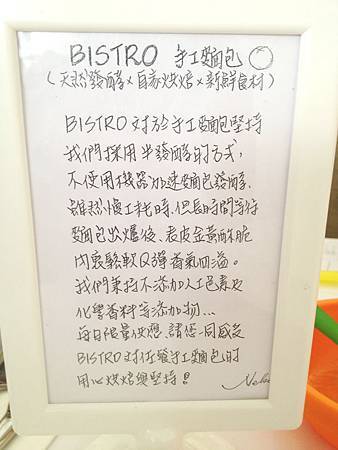 BISTRO 手工麵包
(天然發酵×自家烘焙×新鮮食材)
BISTRO對於手工麵包堅持
我們採用半發酵的方式,
不使用機器加速麵包發酵.
雖然慢工耗時.但長時間等待
麵包出爐後、表皮金黃酥脆
內裏鬆軟Q彈香氣四溢。
我們秉持不添加人工色素及
化學香料等添加物...
每日限量供應、請您一同感受
BISTRO對任發手工麵包的
用心烘焙與堅持!